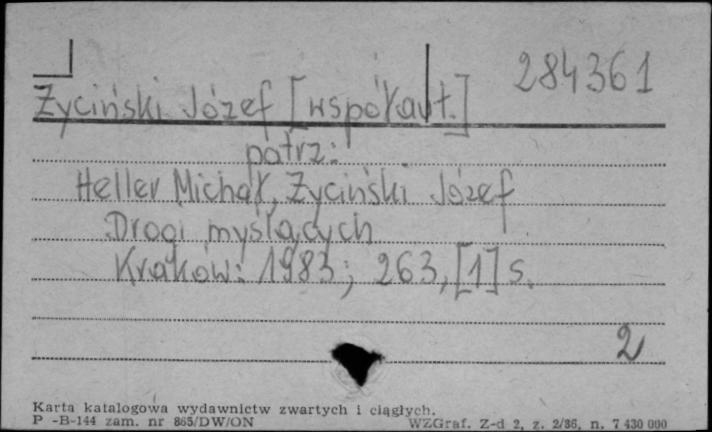 284361
Życiński Józef [współaut.]
patrz:
Heller Michał, Życiński Józef
Drogi myślących
Kraków: 1983; 263, [1] s.
2
Karta katalogowa wydawnictw zwartych i ciągłych.
P -B-144 zam. nr 865/DW/ON
WZGraf. Z-d 2, z. 2/86, n. 7 430 000